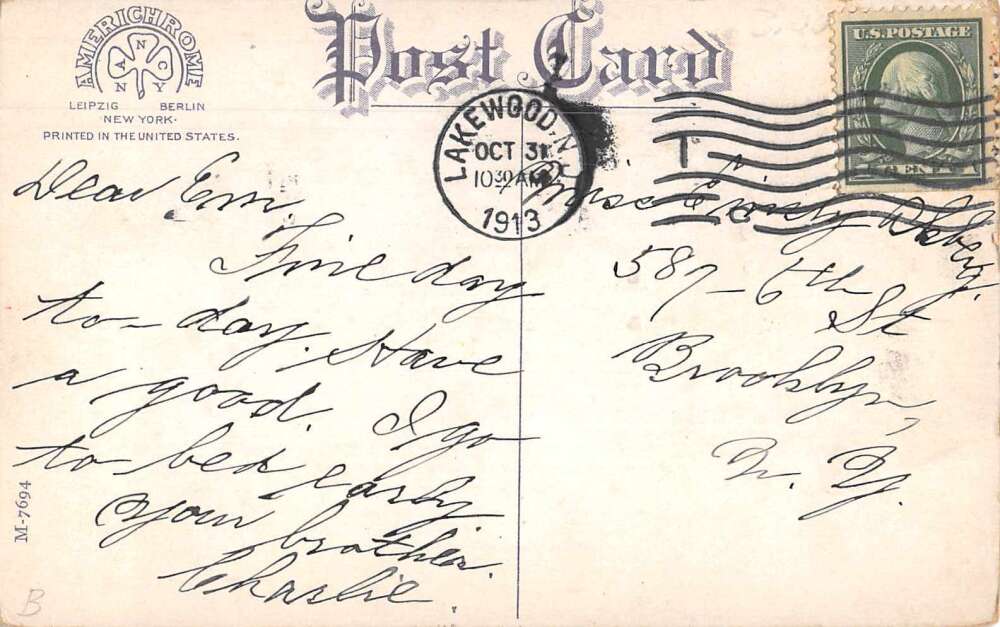 AMERICHROME
A N C N Y
LEIPZIG BERLIN
NEW YORK
PRINTED IN THE UNITED STATES.
Post Card
U.S. POSTAGE
LAKEWOOD, N.J.
OCT 31
10 30 AM
1913
1
Dear Em.
Fine day
to-day. Have
a good. I go
to bed early
your brother.
Charlie.
Miss
587-6th
St
Brooklyn,
N. Y.
M-7694
B